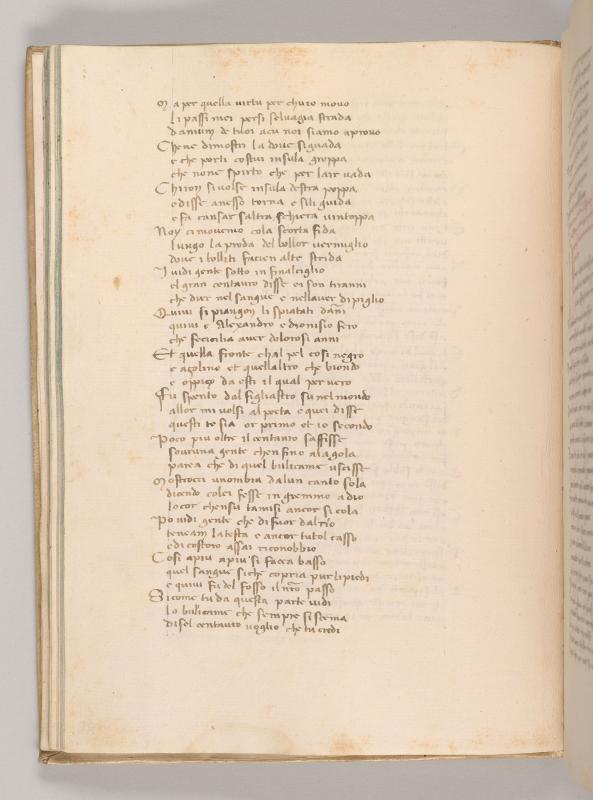 Ma per quella virtu per chuio movo
li passi mei persi selvagia strada
danium de tuoi acu noi siamo aprovo
Chene dimostri la doue si guada
e che porti costui insula groppa
che none spirto che per lair vada
Chiron si volse insula destra poppa
e disse anesso torna e sili guida
e fa cansar saltra schiera vintoppa
Noy ci movemo cola scorta fida
lungo la proda del bollor vermiglio
doue i bolliti facien alte strida
I vidi gente sotto in finalciglio
el gran centauro disse ei son tiranni
che dier nel sangue e nellaver di piglio
Quivi si piangon li spiatati danni
quivi e Alexandro e dionisio fero
che fe cicilia aver dolorosi anni
Et quella fronte chal pel cosi negro
e açolino et quellaltro che biondo
e oppiço da esti il qual per vero
Fu spento dal figliastro su nel mondo
allor mi volsi al poeta e quei disse
questi te sia or primo et io secondo
Poco piu oltre il centauro saffisse
souruna gente chenfino ala gola
parea che di quel bulicame uscisse
Mostrocci unombra dalun canto sola
dicendo colei fesse in gremmo a dio
lo cor chensu tamisi ancor si cola
Po vidi gente che di fuor dal rio
tenean la testa e ancor tutol casso
e di costoro assai riconobbio
Cosi apiu apiu si facea basso
quel sangue si che copria pur li piedi
e quivi fu del fosso il nro passo
Si come tu da questa parte vidi
lo bulicame che sempre si stema
disel centauro voglio che tu credi